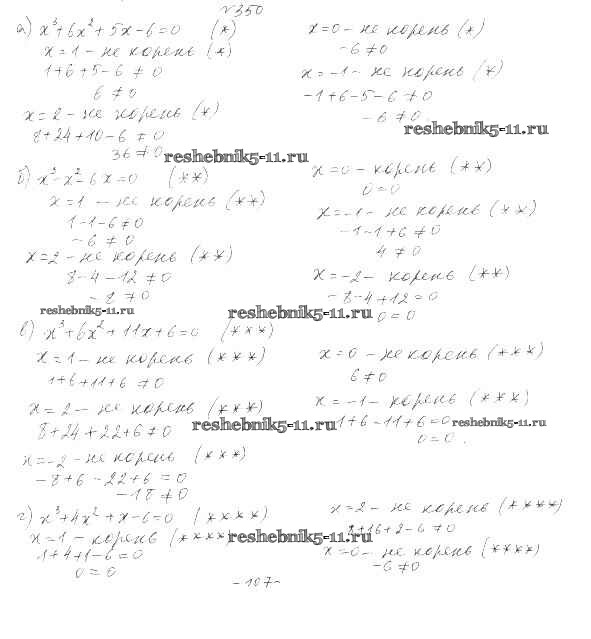 №350
а) x³+6x²+5x-6=0 (*)
x=1 - не корень (*)
1+6+5-6 ≠ 0
6 ≠ 0
x=2 - не корень (*)
8+24+10-6 ≠ 0
36 ≠ 0
x=0 - не корень (*)
-6 ≠ 0
x=-1 - не корень (*)
-1+6-5-6 ≠ 0
-6 ≠ 0
reshebnik5-11.ru
reshebnik5-11.ru
б) x³-x²-6x=0 (**)
x=1 - не корень (**)
1-1-6 ≠ 0
-6 ≠ 0
x=2 - не корень (**)
8-4-12 ≠ 0
-8 ≠ 0
x=0 - корень (**)
0=0
x=-1 - не корень (**)
-1-1+6 ≠ 0
4 ≠ 0
x=-2 - корень (**)
-8-4+12=0
0=0
reshebnik5-11.ru
reshebnik5-11.ru
в) x³+6x²+11x+6=0 (***)
x=1 - не корень (***)
1+6+11+6 ≠ 0
x=2 - не корень (***)
8+24+22+6 ≠ 0
x=-2 - не корень (***)
-8+6-22+6=0
-18 ≠ 0
x=0 - не корень (***)
6 ≠ 0
x=-1 - корень (***)
-1+6-11+6=0
0=0.
reshebnik5-11.ru
reshebnik5-11.ru
г) x³+4x²+x-6=0 (****)
x=1 - корень (****)
1+4+1-6=0
0=0
x=2 - не корень (****)
8+16+2-6 ≠ 0
x=0 - не корень (****)
-6 ≠ 0
reshebnik5-11.ru
-107-